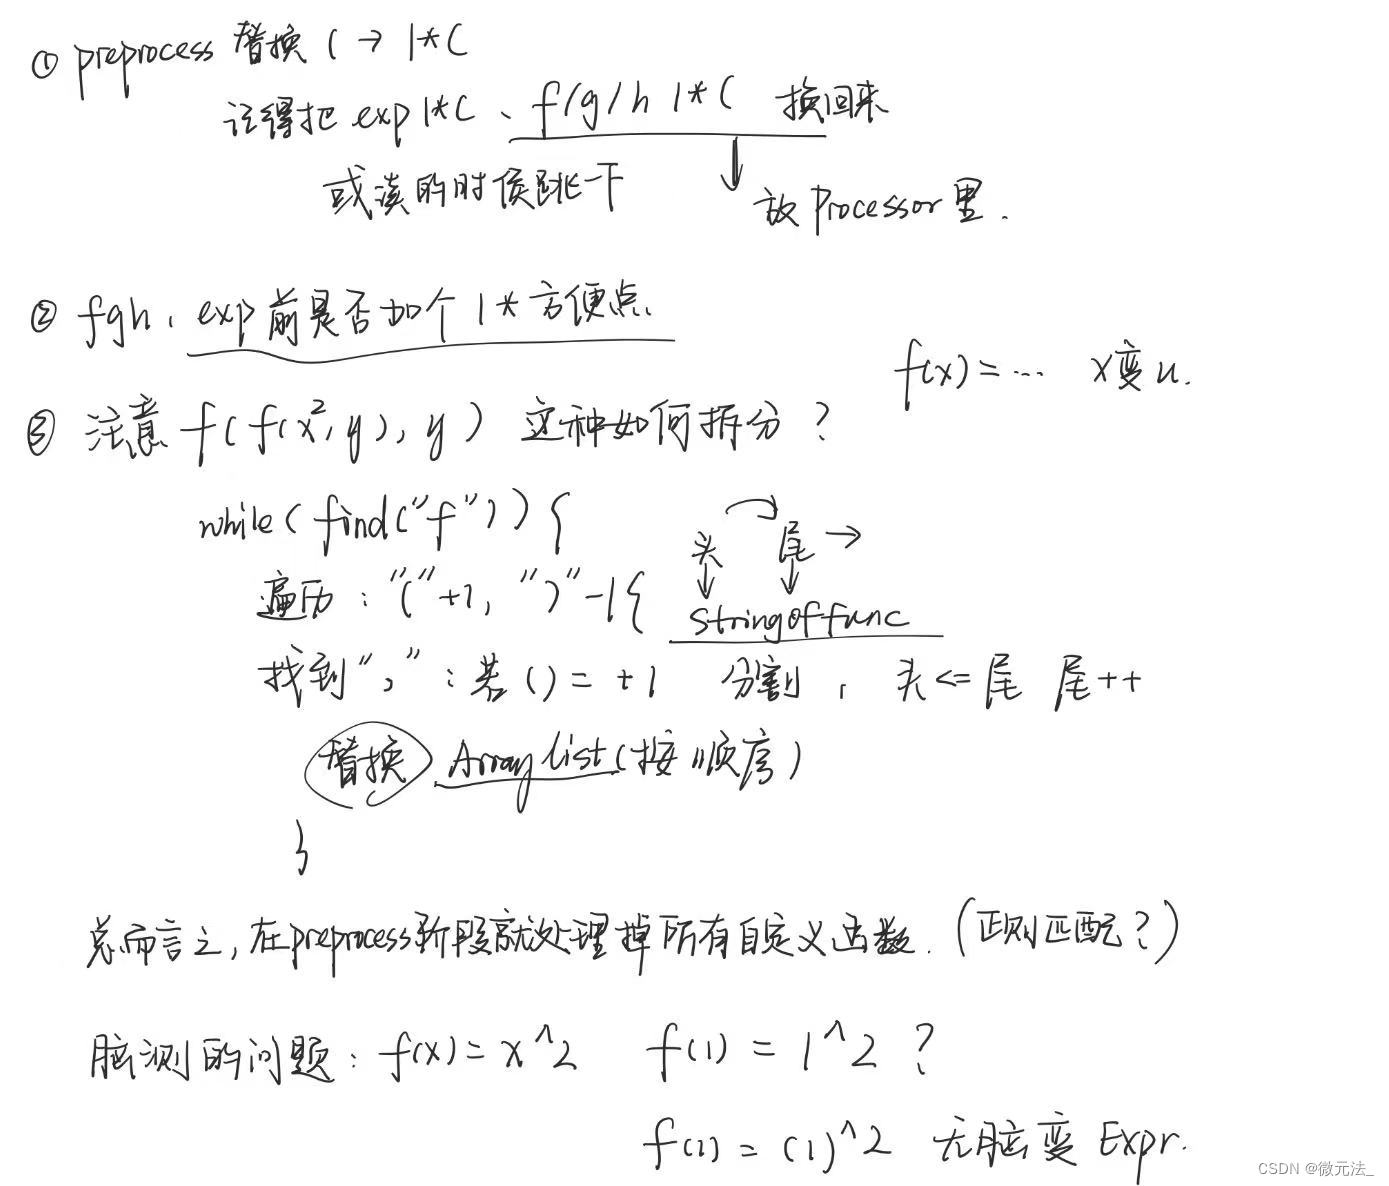 ① preprocess 替换 ( → 1*(
记得把 exp1*(、f/g/h 1*( 换回来
或读的时候跳一下
放 Processor 里.
② fgh、exp前是否加个 1* 方便点.
f(x)=... x变u.
③ 注意 f(f(x²,y),y) 这种如何拆分?
while(find("f")){
头 尾 →
遍历: "("+1, ")"-1{
stringoffunc
找到",": 若()=+1 分割, 头<=尾 尾++
替换 Arraylist(按顺序)
}
总而言之,在preprocess阶段就处理掉所有自定义函数.(正则匹配?)
脑测的问题: f(x)=x^2 f(1)=1^2 ?
f(1)=(1)^2 无脑变 Expr.
CSDN @微元法_